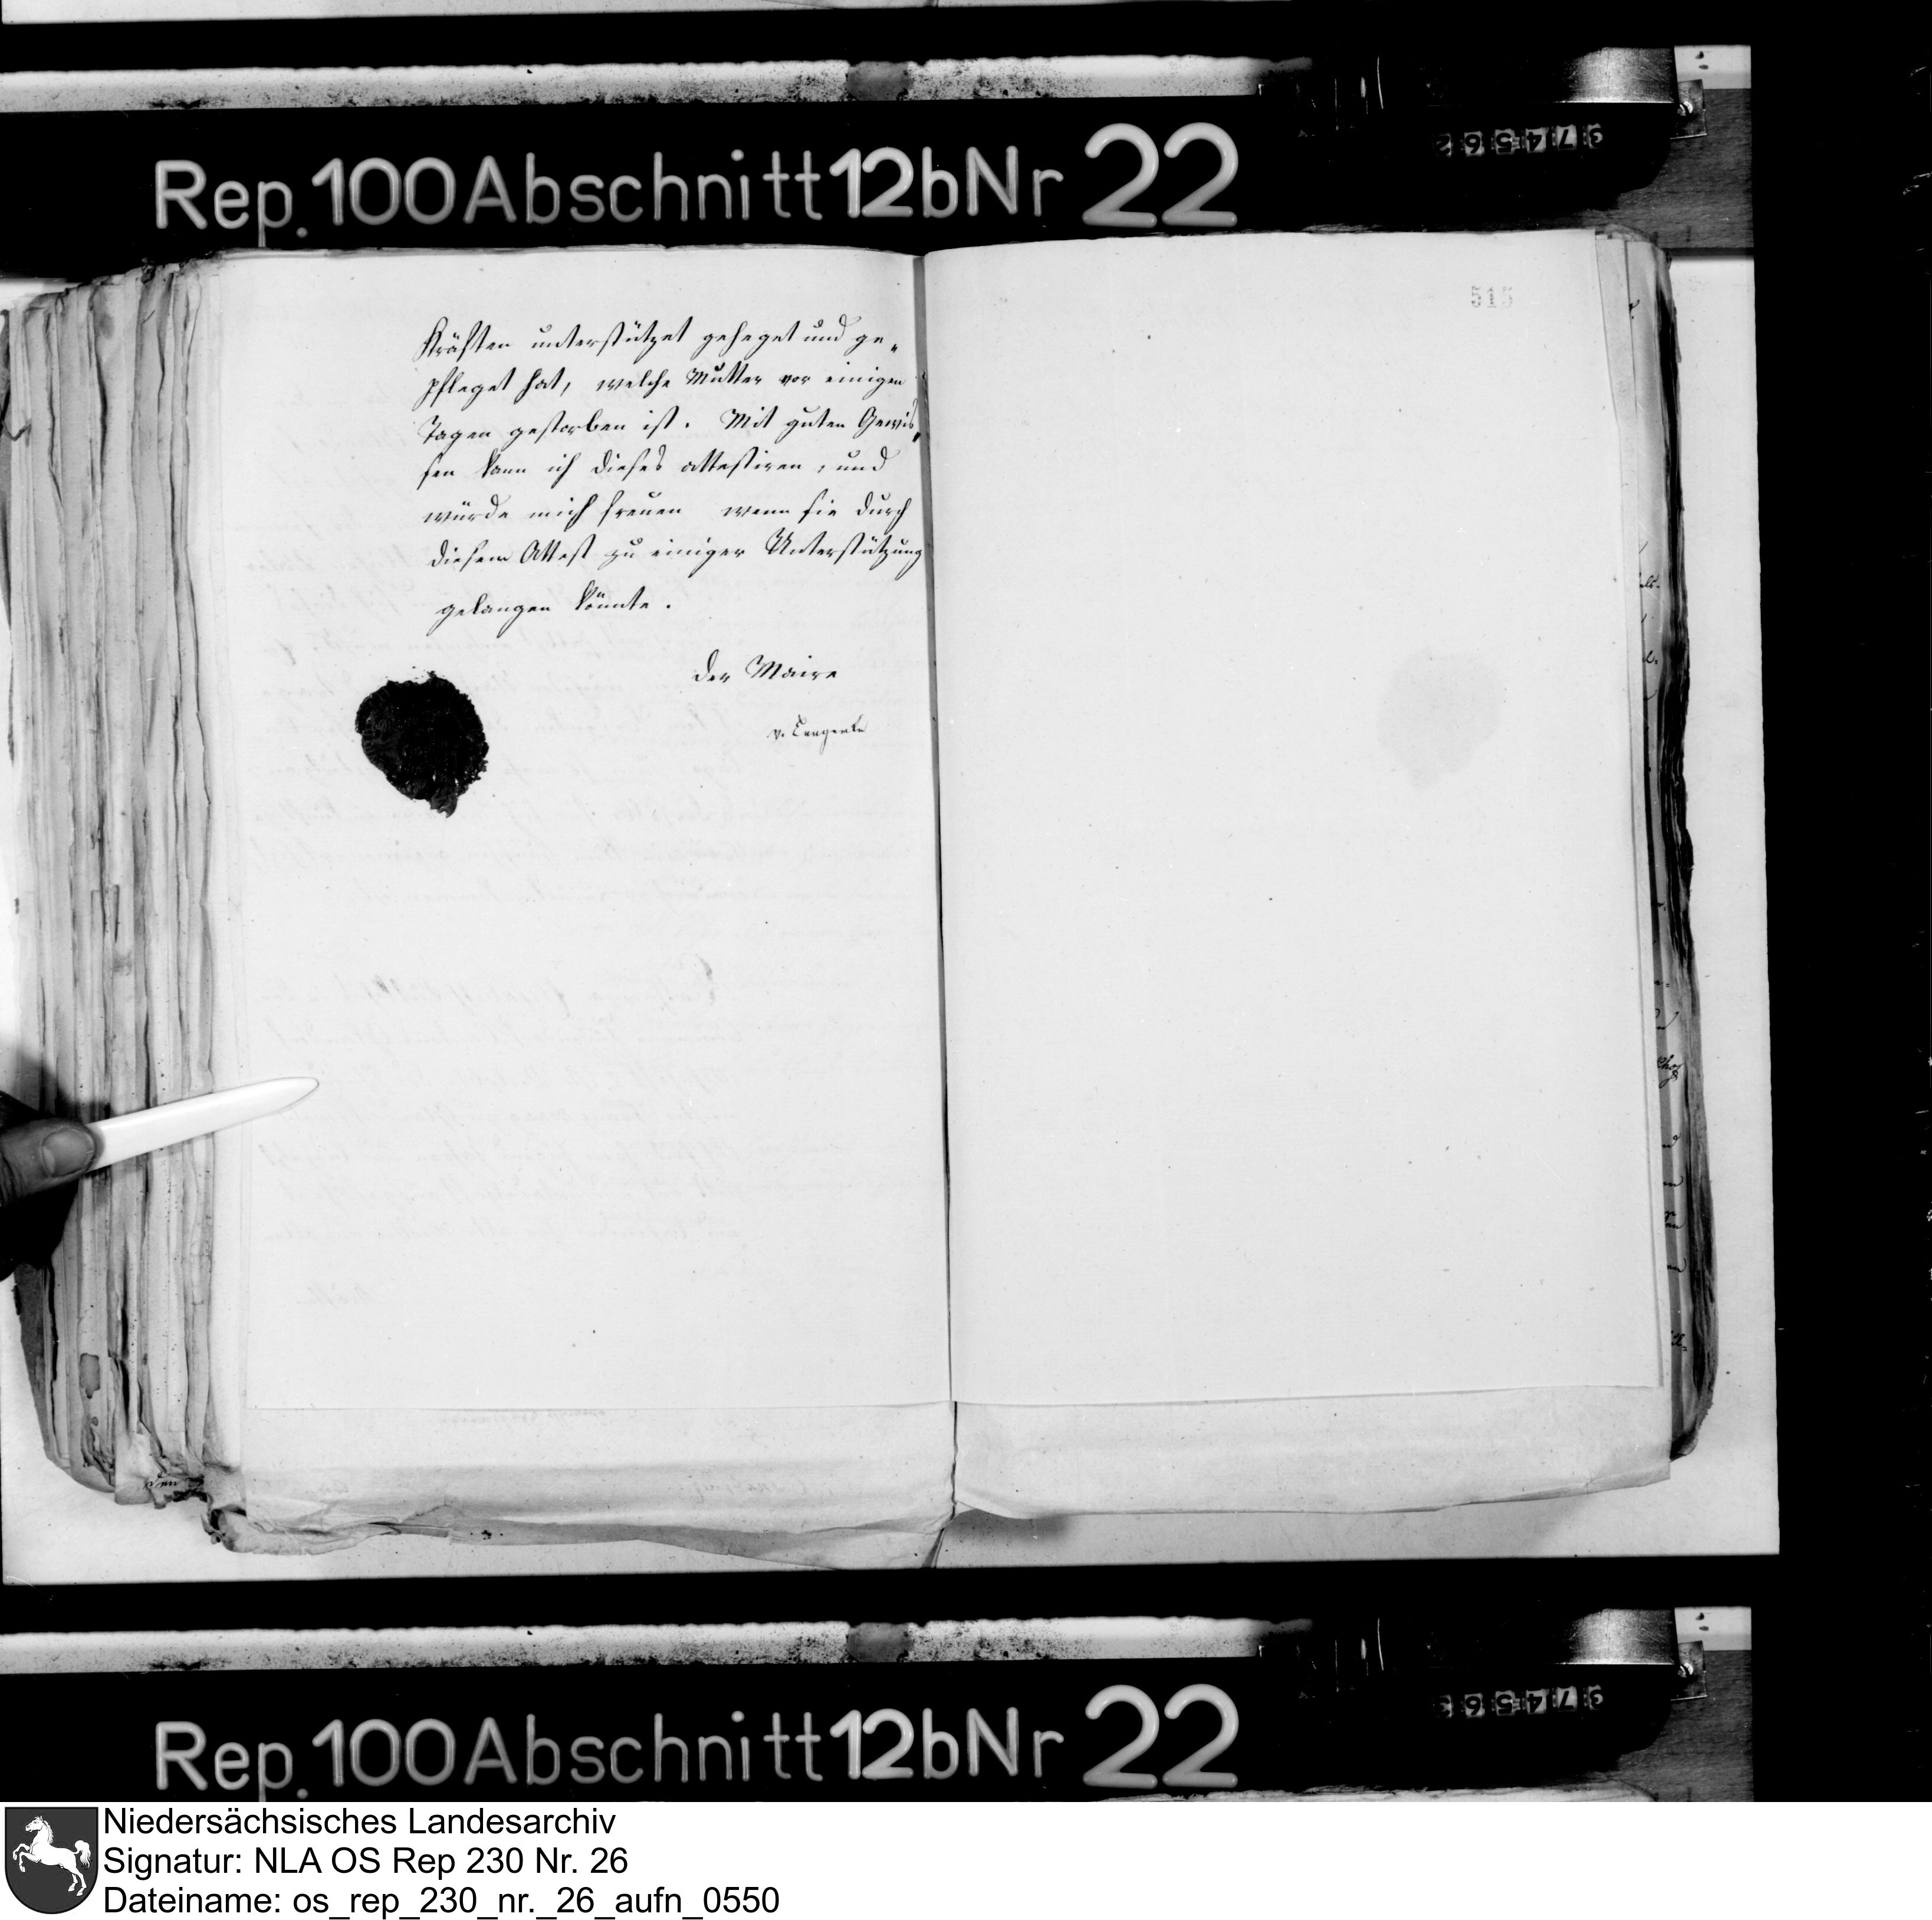 Rep. 100 Abschnitt 12b Nr 22
Kräften unterstützet geheget und ge-
pfleget hat, welche Mutter vor einigen
Tagen gestorben ist. Mit guten Gewis-
sen kann ich dieses attestiren, und
würde mich freuen wenn sie durch
diesem Attest zu einiger Unterstützung
gelangen könnte.
der Maire
v. Lengerke
515
Rep. 100 Abschnitt 12b Nr 22
Niedersächsisches Landesarchiv
Signatur: NLA OS Rep 230 Nr. 26
Dateiname: os_rep_230_nr._26_aufn_0550